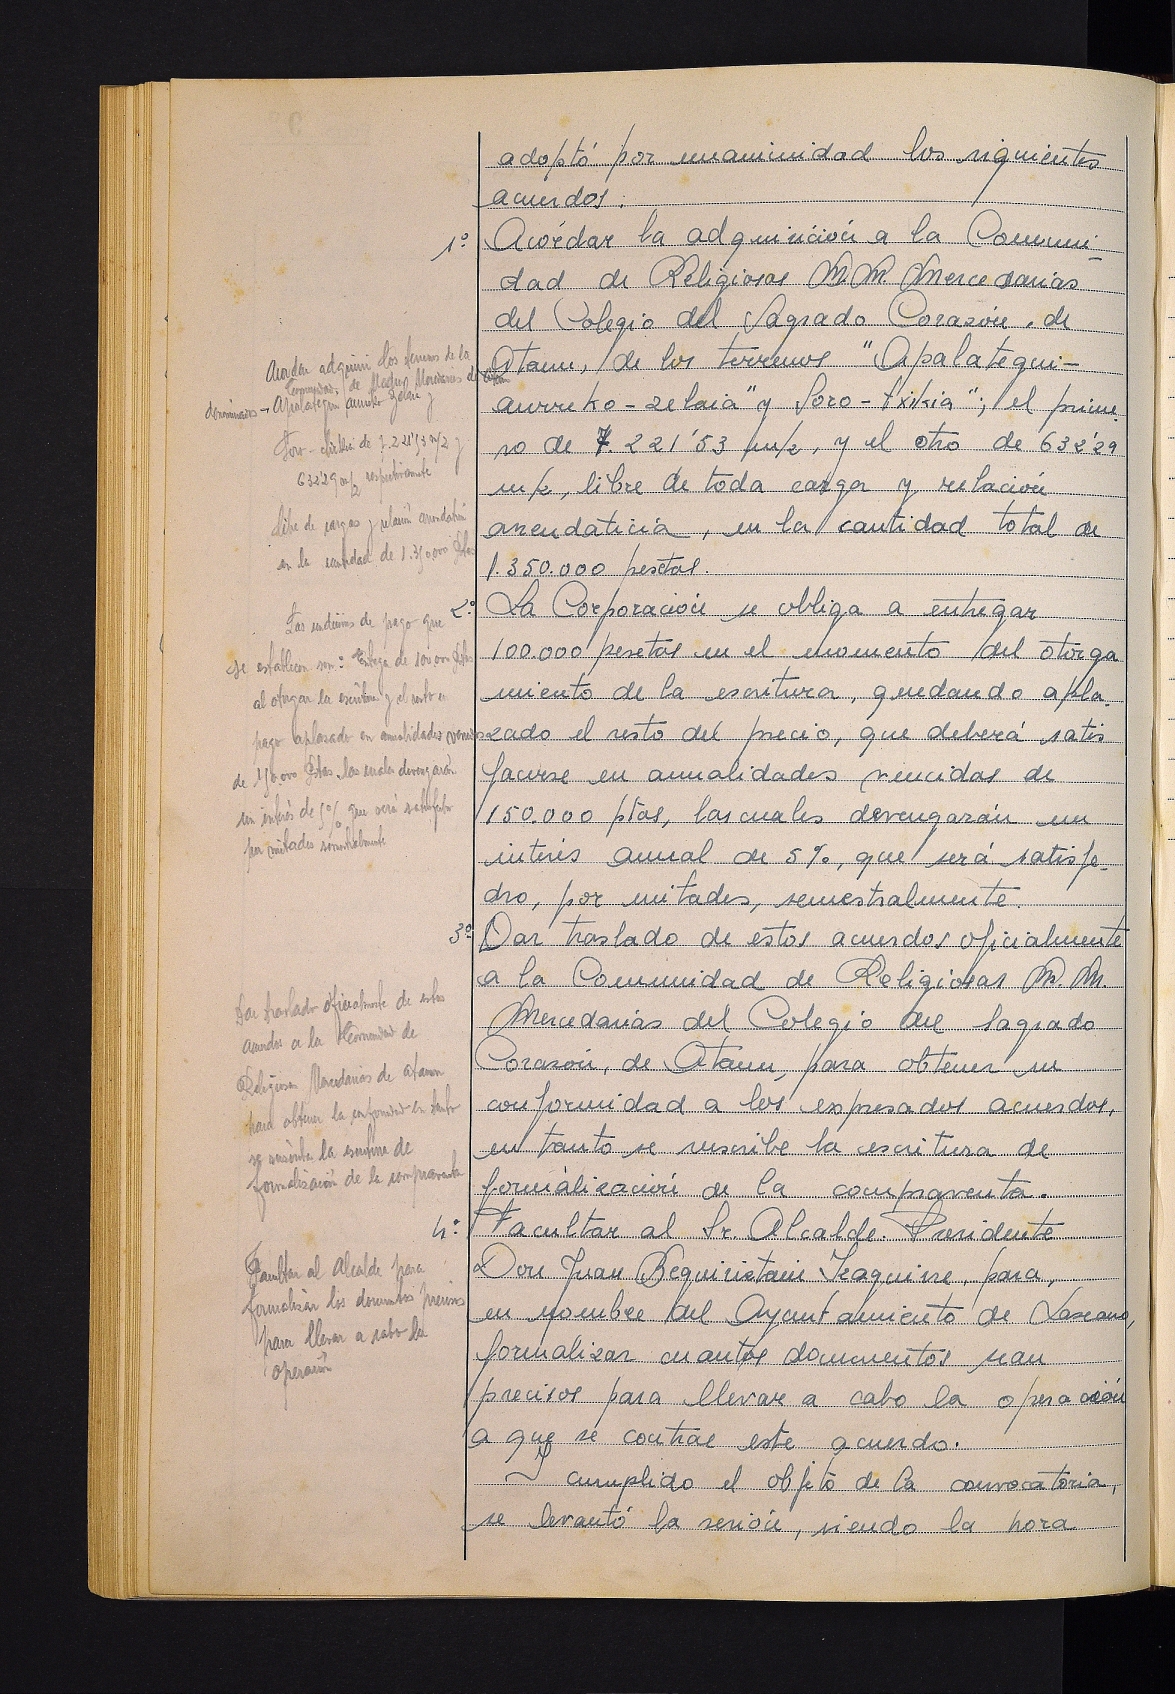 adoptó por unanimidad los siguientes
acuerdos.
1º Acordar la adquisición a la Comuni-
dad de Religiosas M.M. Mercedarias
del Colegio del Sagrado Corazón, de
Ataun, de los terrenos "Apalategui-
aurreko-zelaia" y Soro-txikia"; el prime-
ro de 7.221'53 m/2, y el otro de 632'29
m/2, libre de toda carga y relación
arrendaticia, en la cantidad total de
1.350.000 pesetas.
2º La Corporación se obliga a entregar
100.000 pesetas en el momento del otorga
miento de la escritura, quedando apla-
zado el resto del precio, que deberá satis
facerse en anualidades vencidas de
150.000 ptas, las cuales devengarán un
interés anual de 5%, que será satisfe-
cho, por mitades, semestralmente.
3º Dar traslado de estos acuerdos oficialmente
a la Comunidad de Religiosas M.M.
Mercedarias del Colegio del Sagrado
Corazón, de Ataun, para obtener su
conformidad a los expresados acuerdos,
en tanto se suscribe la escritura de
formalización de la compraventa.
4º Facultar al Sr. Alcalde-Presidente
Don Juan Beguiristain Izaguirre, para,
en nombre del Ayuntamiento de Lazcano,
formalizar cuantos documentos sean
precisos para llevar a cabo la operación
a que se contrae este acuerdo.
Y cumplido el objeto de la convocatoria,
se levantó la sesión, siendo la hora
Acordar adquirir los terrenos de la
Comunidad de Madres Mercedarias de Ataun
denominados - Apalategui aurreko zelaia y
Soro-txikia de 7.221'53 m/2 y
632'29 m/2 respectivamente
libre de cargas y relación arrendaticia
en la cantidad de 1.350.000 Ptas
Las condiciones de pago que
se establecen son: Entrega de 100.000 Ptas
al otorgar la escritura y el resto en
pago aplazado en anualidades vencidas
de 150.000 Ptas las cuales devengarán
un interés de 5% que será satisfecho
por mitades semestralmente
Dar traslado oficialmente de estos
acuerdos a la Comunidad de
Religiosas Mercedarias de Ataun
para obtener la conformidad en tanto
se suscriba la escritura de
formalización de la compraventa
Facultar al Alcalde para
formalizar los documentos precisos
para llevar a cabo la
operación